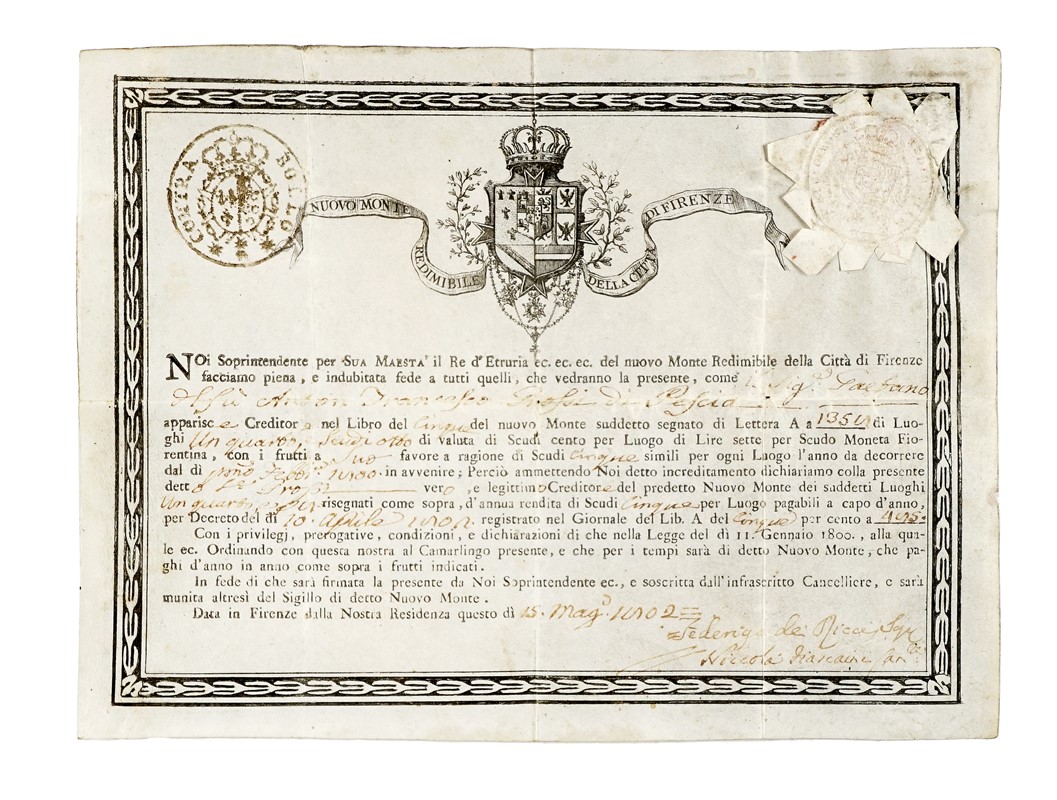 CONTRA BOLLO
NUOVO MONTE
REDIMIBILE
DELLA CITTÀ
DI FIRENZE
NOi Soprintendente per SUA MAESTA' il Re d'Etruria ec. ec. ec. del nuovo Monte Redimibile della Città di Firenze
facciamo piena, e indubitata fede a tutti quelli, che vedranno la presente, come il Sig.r Gaetano
Anton Francesco Grossi di Pescia
apparisce Creditore nel Libro del Cinque del nuovo Monte suddetto segnato di Lettera A a di Luo-
ghi Un quarto, Scudi otto di valuta di Scudi cento per Luogo di Lire sette per Scudo Moneta Fio-
rentina, con i frutti a Suo favore a ragione di Scudi Cinque simili per ogni Luogo l'anno da decorrere
dal dì primo Febb. 1800. in avvenire; Perciò ammettendo Noi detto increditamento dichiariamo colla presente
detto Sr. Grossi vero, e legittimo Creditore del predetto Nuovo Monte dei suddetti Luoghi
Un quarto, risegnati come sopra, d'annua rendita di Scudi Cinque per Luogo pagabili a capo d'anno,
per Decreto del dì 10. Aprile 1802. registrato nel Giornale del Lib. A del Cinque per cento a
Con i privilegj, prerogative, condizioni, e dichiarazioni di che nella Legge del dì 11. Gennaio 1800., alla qua-
le ec. Ordinando con questa nostra al Camarlingo presente, e che per i tempi sarà di detto Nuovo Monte, che pa-
ghi d'anno in anno come sopra i frutti indicati.
In fede di che sarà firmata la presente da Noi Soprintendente ec., e soscritta dall'infrascritto Cancelliere, e sarà
munita altresì del Sigillo di detto Nuovo Monte.
Data in Firenze dalla Nostra Residenza questo dì 15. Magg. 1802
Federigo de Ricci
Niccolò